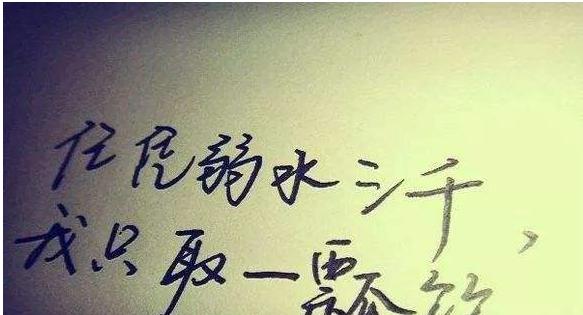 任弱水三千，
我只取一瓢